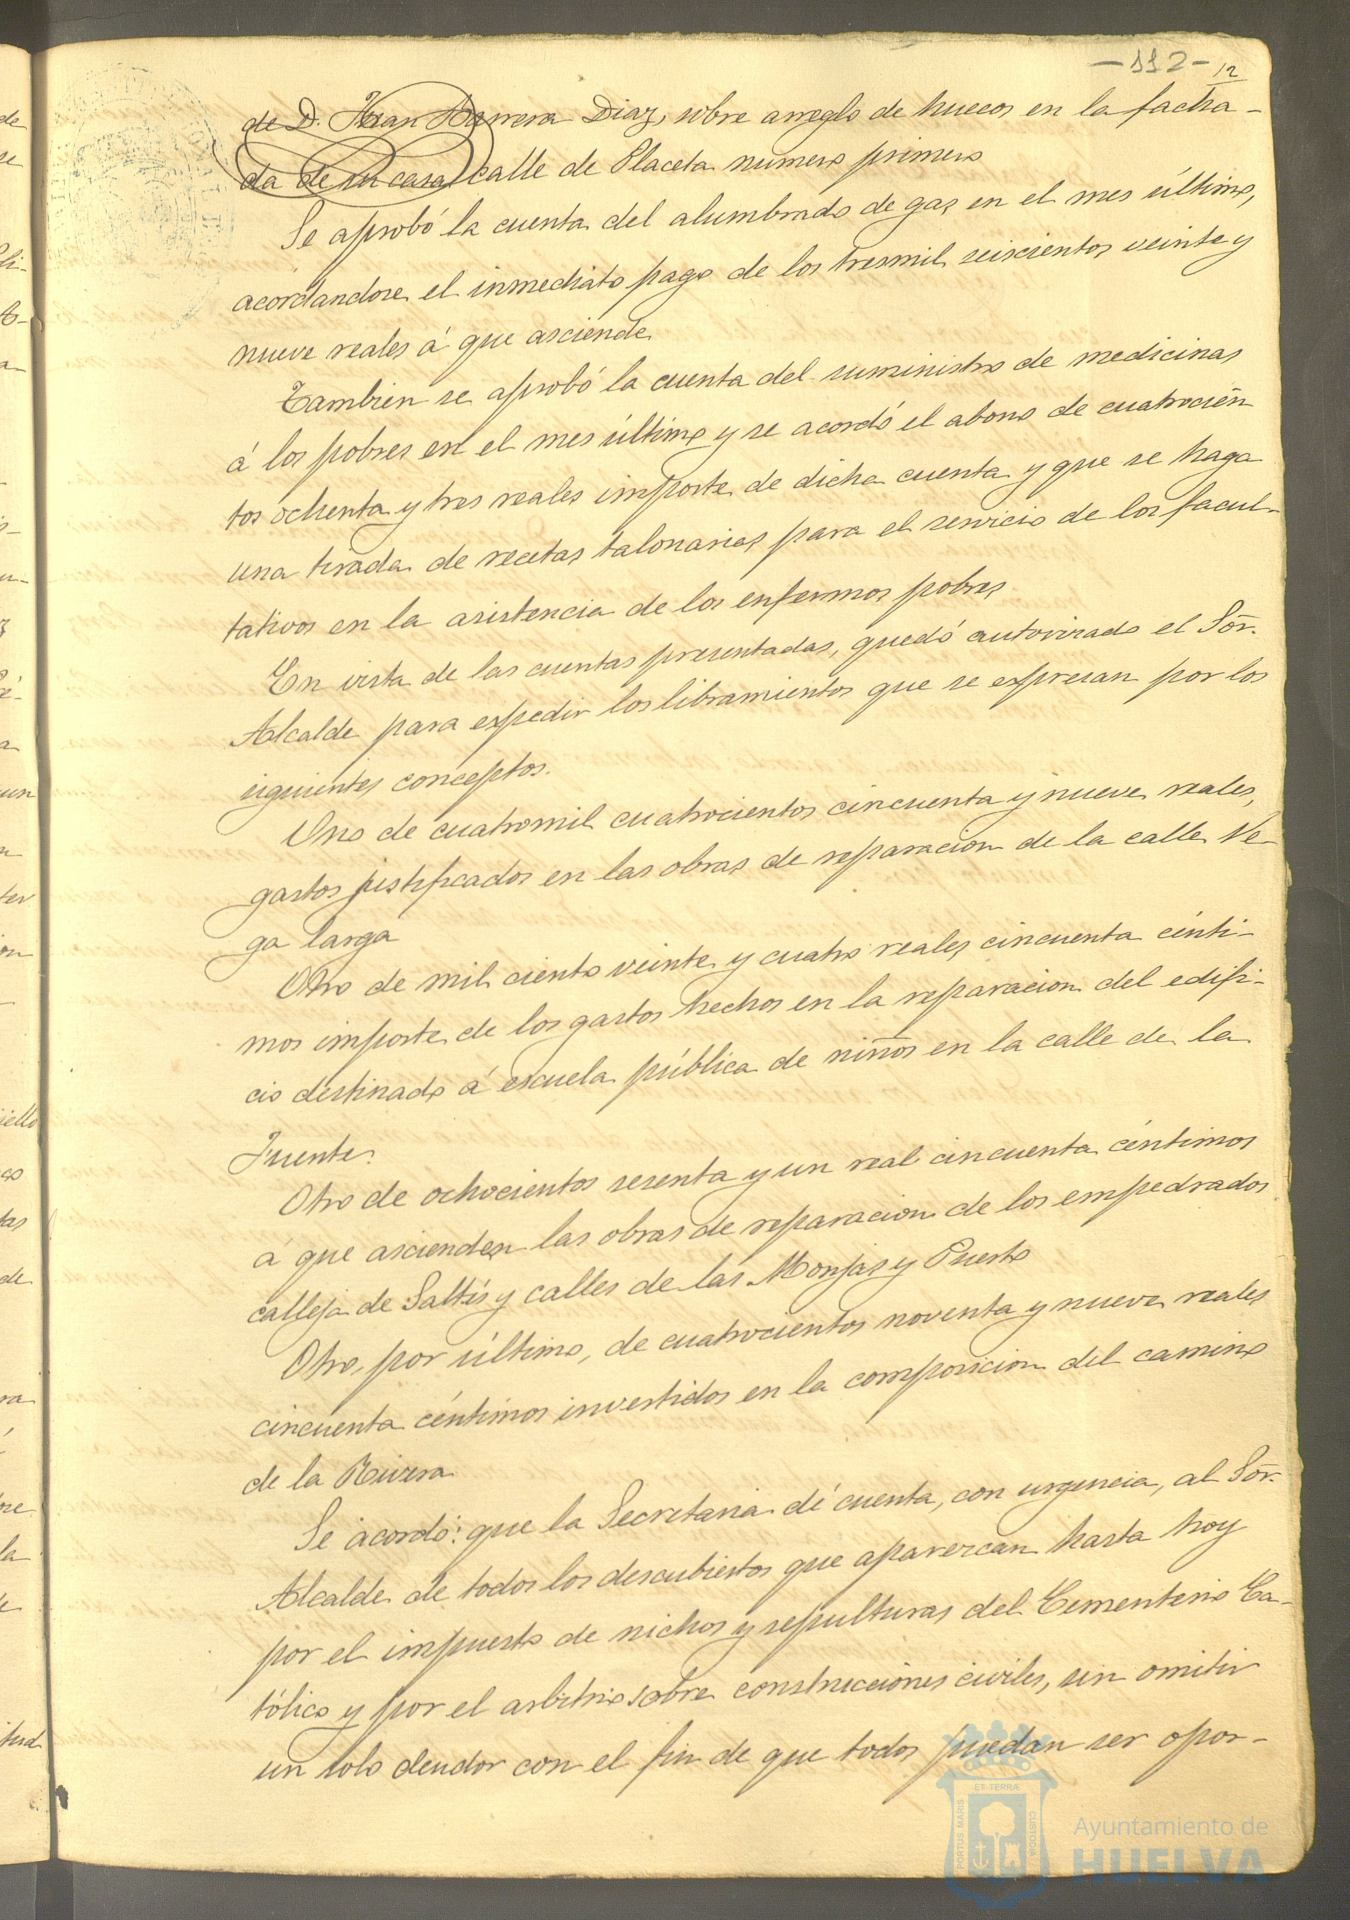 -112-
12
de D. Juan Barrera Diaz, sobre arreglo de huecos en la facha-
da de su casa calle de Placeta numero primero
Se aprobó la cuenta del alumbrado de gas en el mes último,
acordandose el inmediato pago de los tresmil seiscientos veinte y
nueve reales á que asciende
Tambien se aprobó la cuenta del suministro de medicinas
á los pobres en el mes último y se acordó el abono de cuatrocien
tos ochenta y tres reales importe de dicha cuenta y que se haga
una tirada de recetas talonarias para el servicio de los facul-
tativos en la asistencia de los enfermos pobres
En vista de las cuentas presentadas, quedó autorizado el Sõr.
Alcalde para expedir los libramientos que se expresan por los
siguientes conceptos.
Uno de cuatromil cuatrocientos cincuenta y nueve reales,
gastos justificados en las obras de reparacion de la calle Ve-
ga larga
Otro de mil ciento veinte y cuatro reales cincuenta cénti-
mos importe de los gastos hechos en la reparacion del edifi-
cio destinado á escuela pública de niños en la calle de la
Fuente.
Otro de ochocientos sesenta y un real cincuenta céntimos
á que ascienden las obras de reparacion de los empedrados
calleja de Saltés y calles de las Monjas y Puerto
Otro, por último, de cuatrocientos noventa y nueve reales
cincuenta céntimos invertidos en la composicion del camino
de la Rivera
Se acordó: que la Secretaria dé cuenta, con urgencia, al Sõr.
Alcalde de todos los descubiertos que aparezcan hasta hoy
por el impuesto de nichos y sepulturas del Cementerio Ca-
tólico y por el arbitrio sobre construcciones civiles, sin omitir
un solo deudor con el fin de que todos puedan ser opor-
ET TERRÆ
PORTUS MARIS
CUSTODIA
Ayuntamiento de
HUELVA